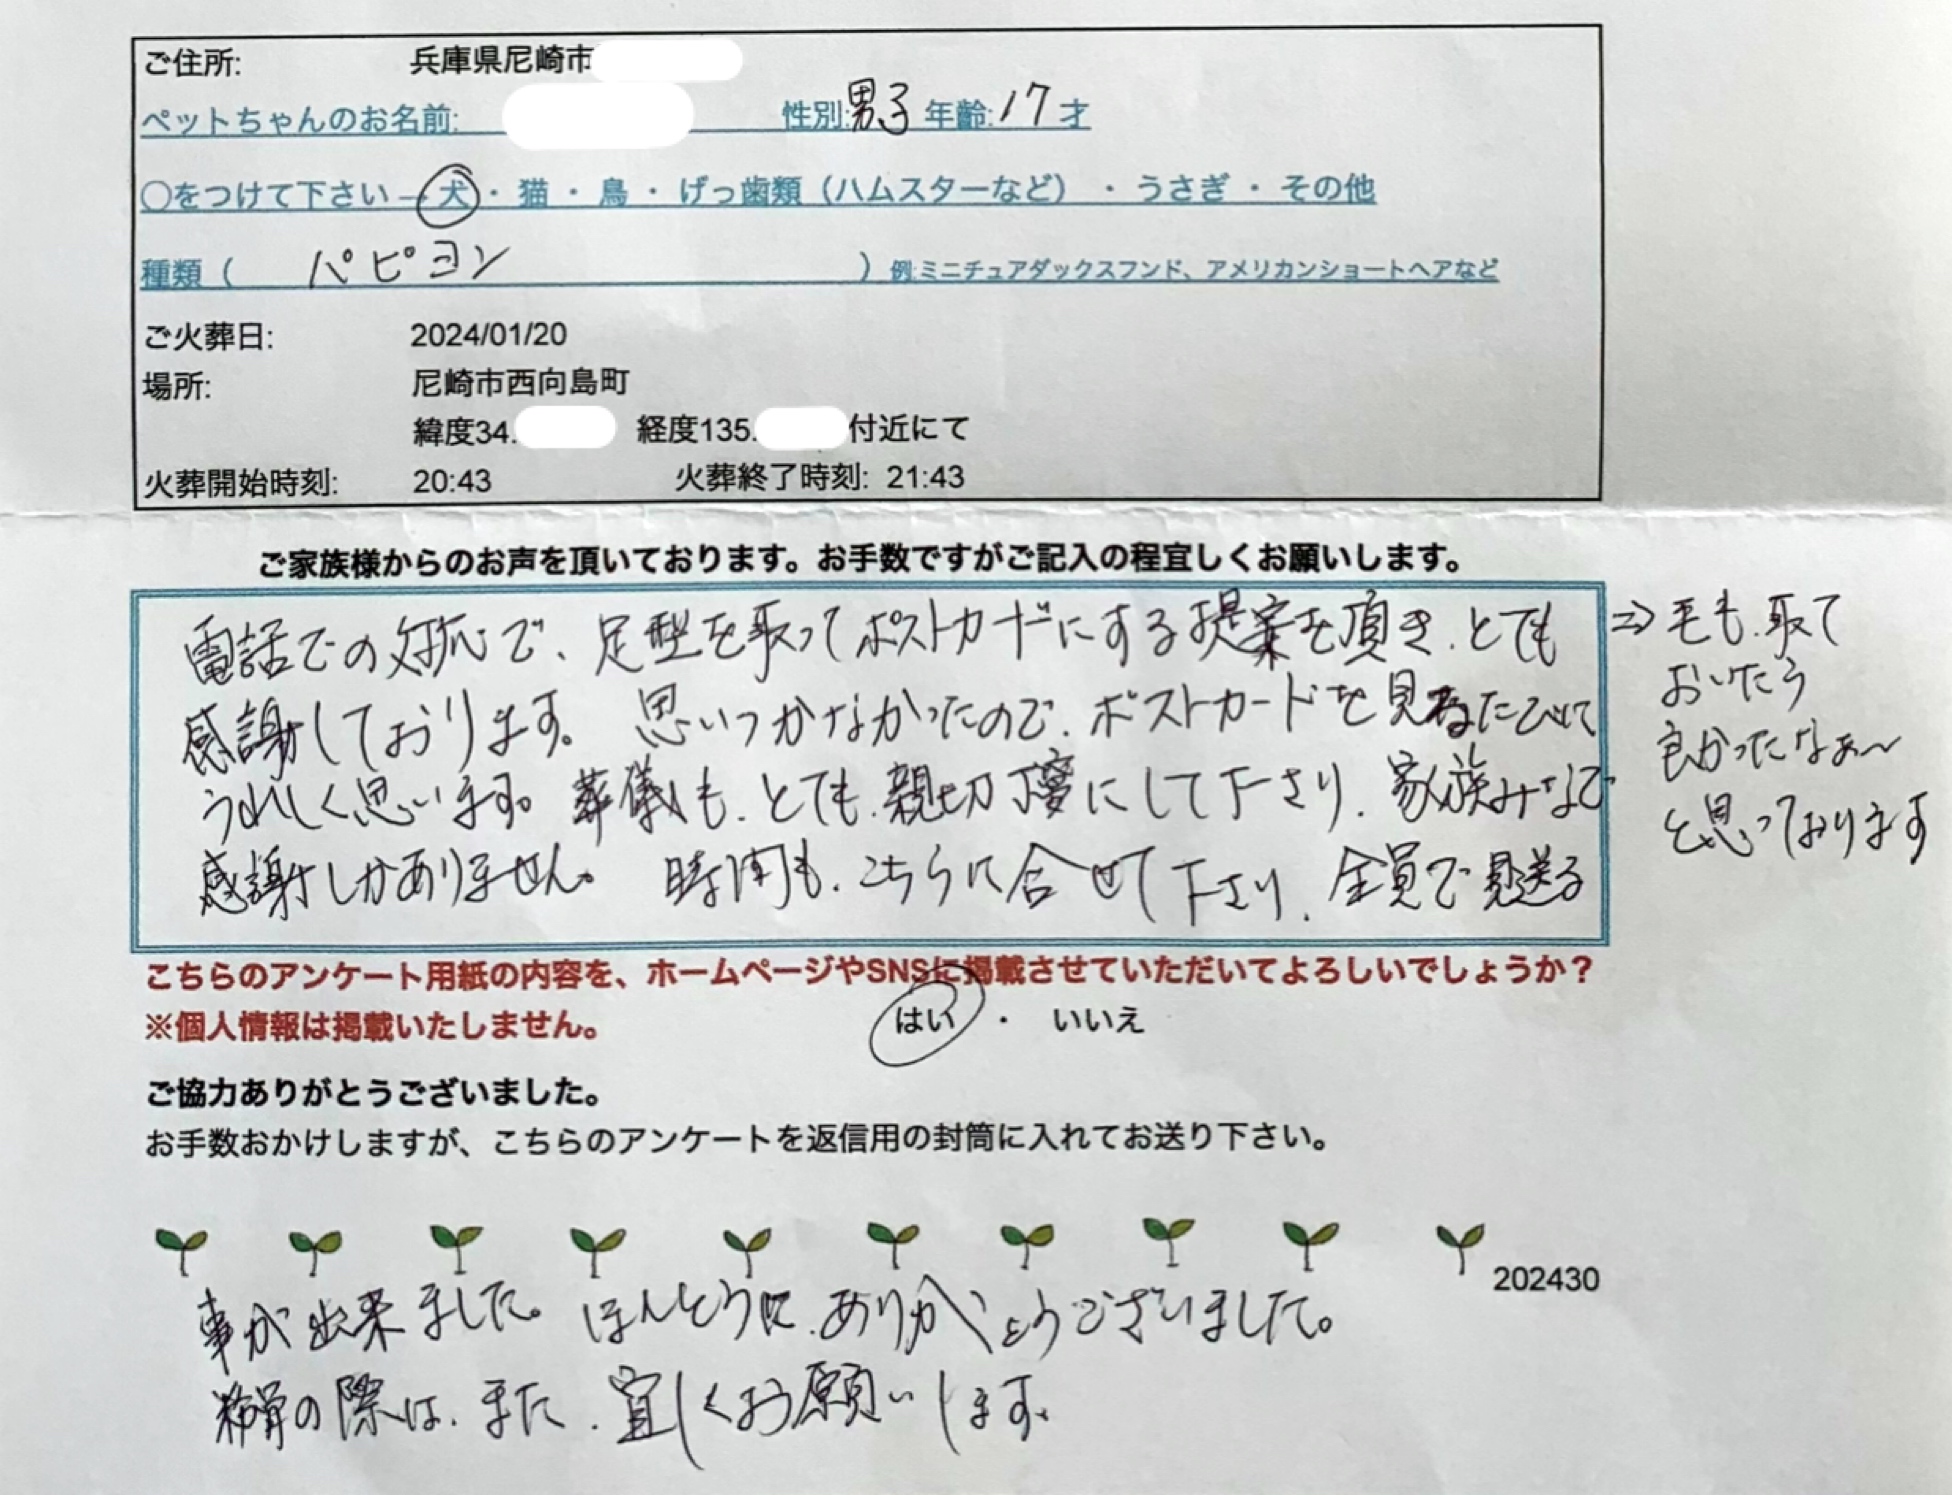 ご住所: 兵庫県尼崎市
ペットちゃんのお名前: 性別:男子 年齢:17才
○をつけて下さい→犬・猫・鳥・げっ歯類(ハムスターなど)・うさぎ・その他
種類( パピヨン ) 例:ミニチュアダックスフンド、アメリカンショートヘアなど
ご火葬日: 2024/01/20
場所: 尼崎市西向島町
緯度34. 経度135. 付近にて
火葬開始時刻: 20:43 火葬終了時刻: 21:43
ご家族様からのお声を頂いております。お手数ですがご記入の程宜しくお願いします。
電話での対応で、足型を取ってポストカードにする提案を頂き、とても
感謝しております。思いつかなかったので、ポストカードを見るたびに
うれしく思います。葬儀も、とても、親切丁寧にして下さり、家族みなで
感謝しかありません。時間も、こちらに合せて下さり、全員で見送る
⇒毛も、取て
おいたら
良かったなぁ〜
と思っております
こちらのアンケート用紙の内容を、ホームページやSNSに掲載させていただいてよろしいでしょうか?
※個人情報は掲載いたしません。 はい ・ いいえ
ご協力ありがとうございました。
お手数おかけしますが、こちらのアンケートを返信用の封筒に入れてお送り下さい。
202430
事が出来ました。ほんとうに、ありがとうございました。
の際は、また、宜しくお願いします。